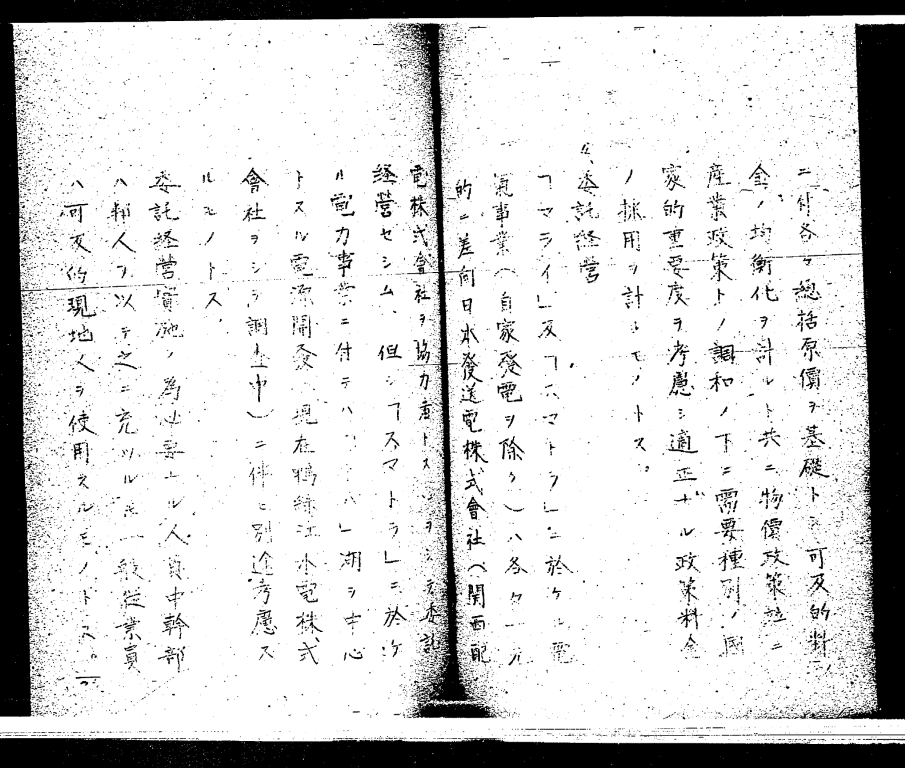 ニ付各々總括原價ヲ基礎トシ可及的料
金ノ均衡化ヲ計ルト共ニ物價政策並ニ
産業政策トノ調和ノ下ニ需要種別ノ國
家的重要度ヲ考慮シ適正ナル政策料金
ノ採用ヲ計ルモノトス。
委託経營
「マライ」及「スマトラ」ニ於ケル電
氣事業(自家發電ヲ除ク)ハ各々一元
的ニ差向日本發送電株式會社(関西配
電株式會社ヲ協力者トス)ヲシテ委託
経營セシム、但シ「スマトラ」ニ於ケ
ル電力事業ニ付テハ「 」湖ヲ中心
トスル電源開發(現在鴨緑江水電株式
會社ヲシテ調査中)ニ伴ヒ別途考慮ス
ルモノトス、
委託経營實施ノ為必要ナル人員中幹部
ハ邦人ヲ以テ之ニ充ツルモ一般従業員
ハ可及的現地人ヲ使用スルモノトス。